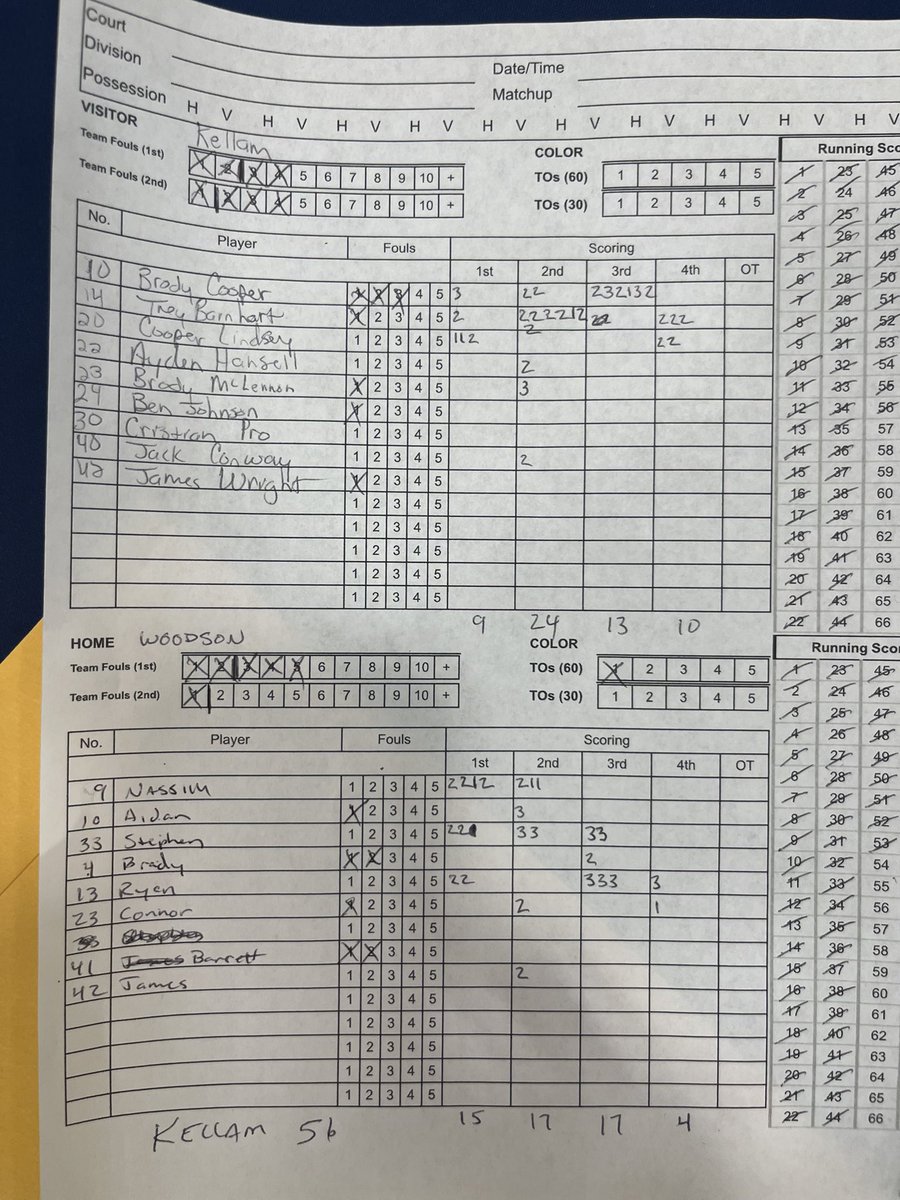 Court
Division
Date/Time
Possession
Matchup
H V H V H V H V H V H V H V H V H V H V
VISITOR Kellam
Team Fouls (1st) 1 2 3 4 5 6 7 8 9 10 +
COLOR
TOs (60) 1 2 3 4 5
Team Fouls (2nd) 1 2 3 4 5 6 7 8 9 10 +
TOs (30) 1 2 3 4 5
No. Player Fouls Scoring
1st 2nd 3rd 4th OT
10 Brody Cooper 1 2 3 4 5 3 22 232132
14 Troy Barnhart 1 2 3 4 5 2 222212 2 22 222
20 Cooper Lindsey 1 2 3 4 5 112 22
22 Ayden Hansell 1 2 3 4 5 2
23 Brody McLennon 1 2 3 4 5 3
24 Ben Johnson 1 2 3 4 5
30 Cristian Pro 1 2 3 4 5
40 Jack Conway 1 2 3 4 5 2
42 James Wright 1 2 3 4 5
1 2 3 4 5
1 2 3 4 5
1 2 3 4 5
1 2 3 4 5
1 2 3 4 5
9 24 13 10
Running Sco
1 23 45
2 24 46
3 25 47
4 26 48
5 27 49
6 28 50
7 29 51
8 30 52
9 31 53
10 32 54
11 33 55
12 34 56
13 35 57
14 36 58
15 37 59
16 38 60
17 39 61
18 40 62
19 41 63
20 42 64
21 43 65
22 44 66
HOME WOODSON
COLOR
Team Fouls (1st) 1 2 3 4 5 6 7 8 9 10 +
TOs (60) 1 2 3 4 5
Team Fouls (2nd) 1 2 3 4 5 6 7 8 9 10 +
TOs (30) 1 2 3 4 5
No. Player Fouls Scoring
1st 2nd 3rd 4th OT
9 NASSIM 1 2 3 4 5 2212 211
10 Aidan 1 2 3 4 5 3
33 Stephen 1 2 3 4 5 22 33 33
4 Brady 1 2 3 4 5 2
13 Ryan 1 2 3 4 5 22 333 3
23 Connor 1 2 3 4 5 2 1
1 2 3 4 5
41 James Barrett 1 2 3 4 5
42 James 1 2 3 4 5 2
1 2 3 4 5
1 2 3 4 5
1 2 3 4 5
1 2 3 4 5
1 2 3 4 5
15 17 17 4
KELLAM 56
Running Scor
1 23 45
2 24 46
3 25 47
4 26 48
5 27 49
6 28 50
7 29 51
8 30 52
9 31 53
10 32 54
11 33 55
12 34 56
13 35 57
14 36 58
15 37 59
16 38 60
17 39 61
18 40 62
19 41 63
20 42 64
21 43 65
22 44 66